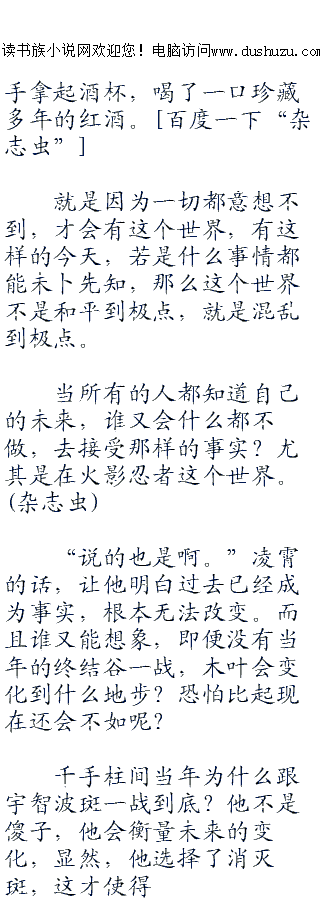 读书族小说网欢迎您！电脑访问www.dushuzu.com
手拿起酒杯，喝了一口珍藏
多年的红酒。[百度一下“杂
志虫”]
就是因为一切都意想不
到，才会有这个世界，有这
样的今天，若是什么事情都
能未卜先知，那么这个世界
不是和平到极点，就是混乱
到极点。
当所有的人都知道自己
的未来，谁又会什么都不
做，去接受那样的事实？尤
其是在火影忍者这个世界。
(杂志虫)
“说的也是啊。”凌霄
的话，让他明白过去已经成
为事实，根本无法改变。而
且谁又能想象，即便没有当
年的终结谷一战，木叶会变
化到什么地步？恐怕比起现
在还会不如呢？
千手柱间当年为什么跟
宇智波斑一战到底？他不是
傻子，他会衡量未来的变
化，显然，他选择了消灭
斑，这才使得